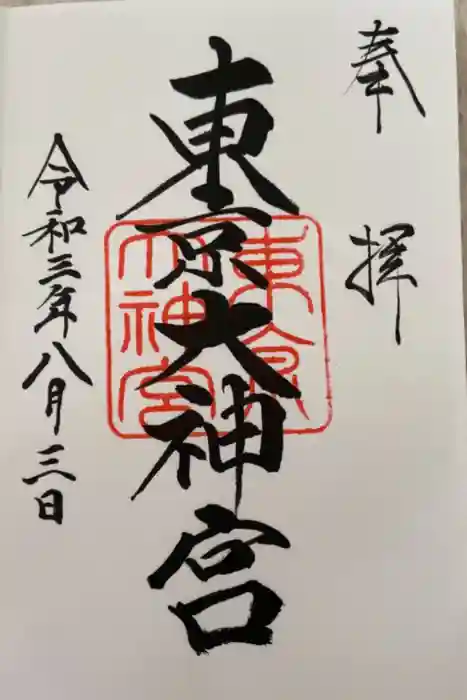 奉拝
東京大神宮
東京大神宮
令和三年八月三日